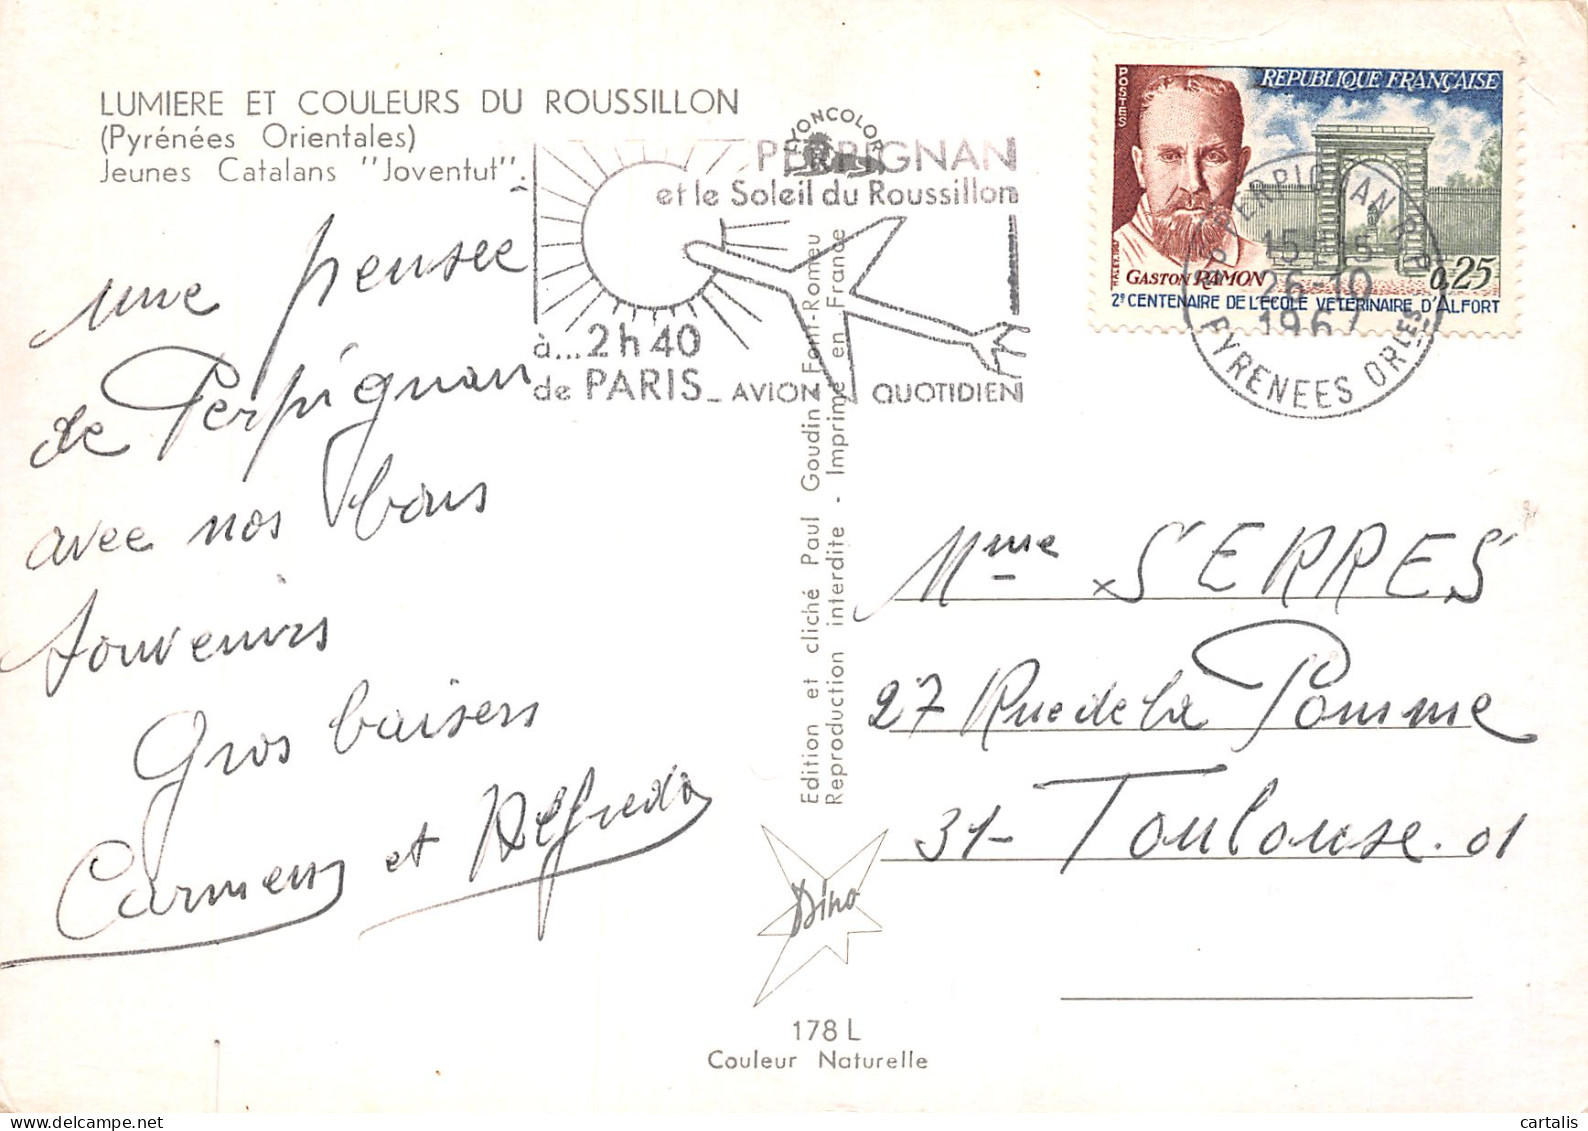 LUMIERE ET COULEURS DU ROUSSILLON
(Pyrénées Orientales)
Jeunes Catalans "Joventut".
LYONCOLOR
PERPIGNAN
et le Soleil du Roussillon
à... 2h40
de PARIS - AVION QUOTIDIEN
POSTES
REPUBLIQUE FRANÇAISE
GASTON RAMON
0,25
2e CENTENAIRE DE L'ÉCOLE VÉTÉRINAIRE D'ALFORT
PERPIGNAN R.P.
15H15
26-10
1967
PYRENEES ORLES
une pensée
de Perpignan
avec nos bons
souvenirs
Gros baisers
Carmen et Alfredo
Edition et cliché Paul Goudin Font-Romeu
Reproduction interdite - Imprimé en France
Mme SERRES
27 Rue de la Pomme
31- Toulouse. 01
Dino
178 L
Couleur Naturelle
cartalis